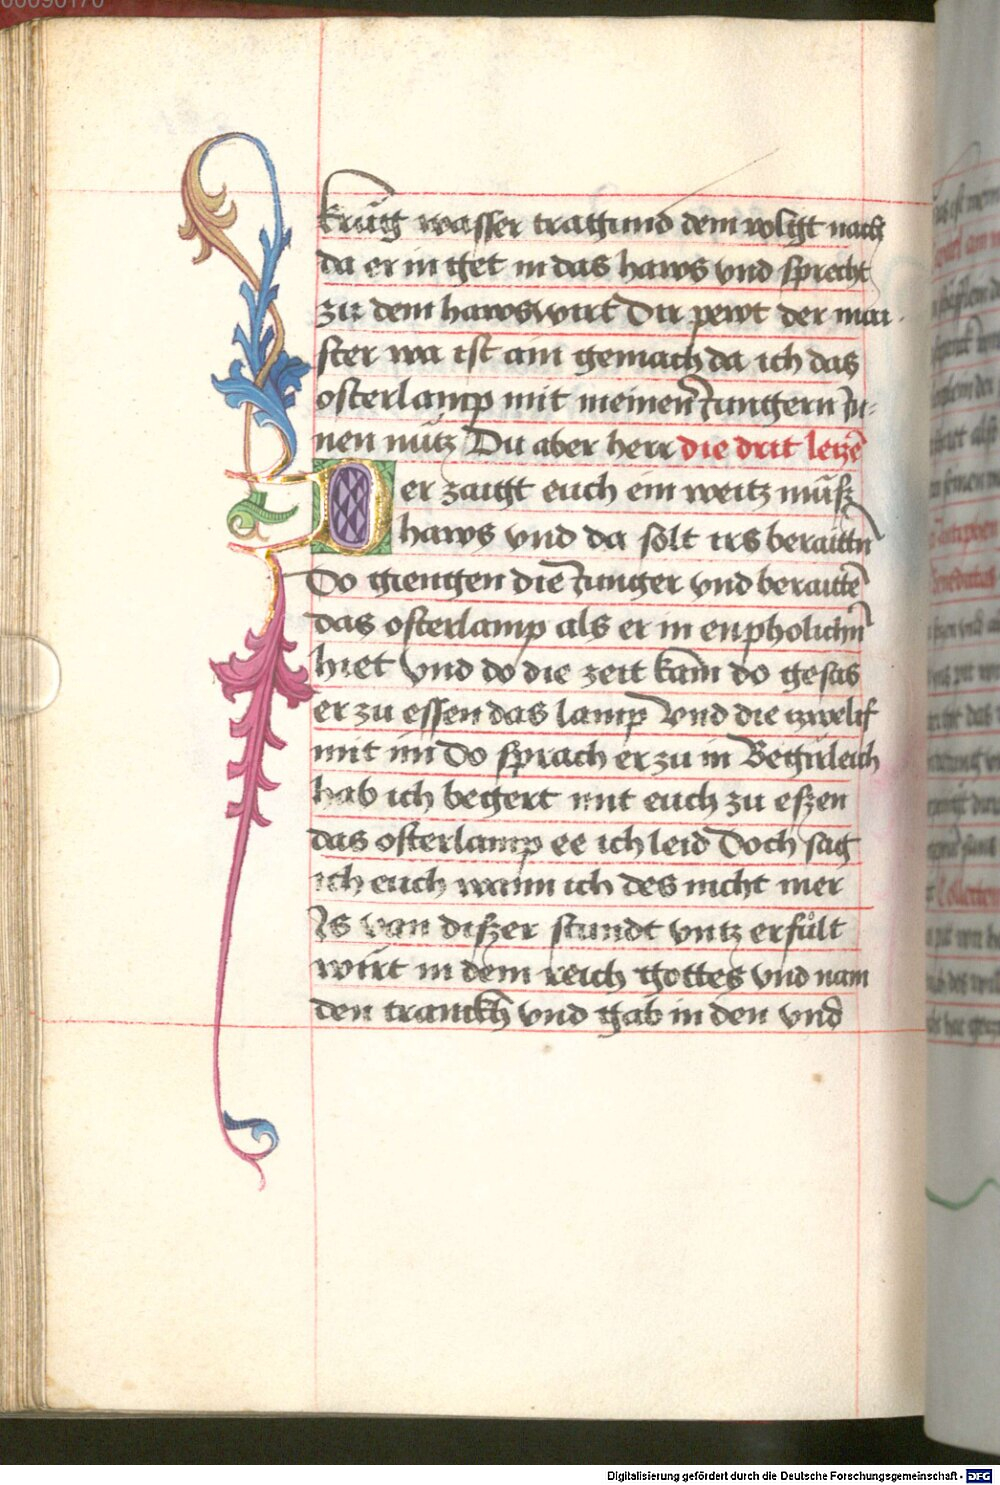 00090170
krůg wasser tragund dem volgt nach
da er in get in das haws vnd sprecht
zu dem hawswirt Dir pewt der mai-
ster wa ist ain gemach da ich das
osterlamp mit meinen̄ Iungern in-
nen nütz Du aber herr die drit letzē
Der zaigt euch ein weitz můsz
haws vnd da solt irs beraittn̄
Do giengen die Iunger vnd beraittē
das osterlamp als er in enpholichn̄
hiet vnd do die zeit kam do gesas
er zu essen das lamp vnd die tzwelif
mit im Do sprach er zu in Begirleich
hab ich begert mit euch zu eszen
das osterlamp ee ich leid Doch sag
ich euch wann ich des nicht mer
Is van diszer stundt vntz erfült
wirt in dem reich gottes vnd nam
den tranckh vnd gab in den vnd
Digitalisierung gefördert durch die Deutsche Forschungsgemeinschaft - DFG